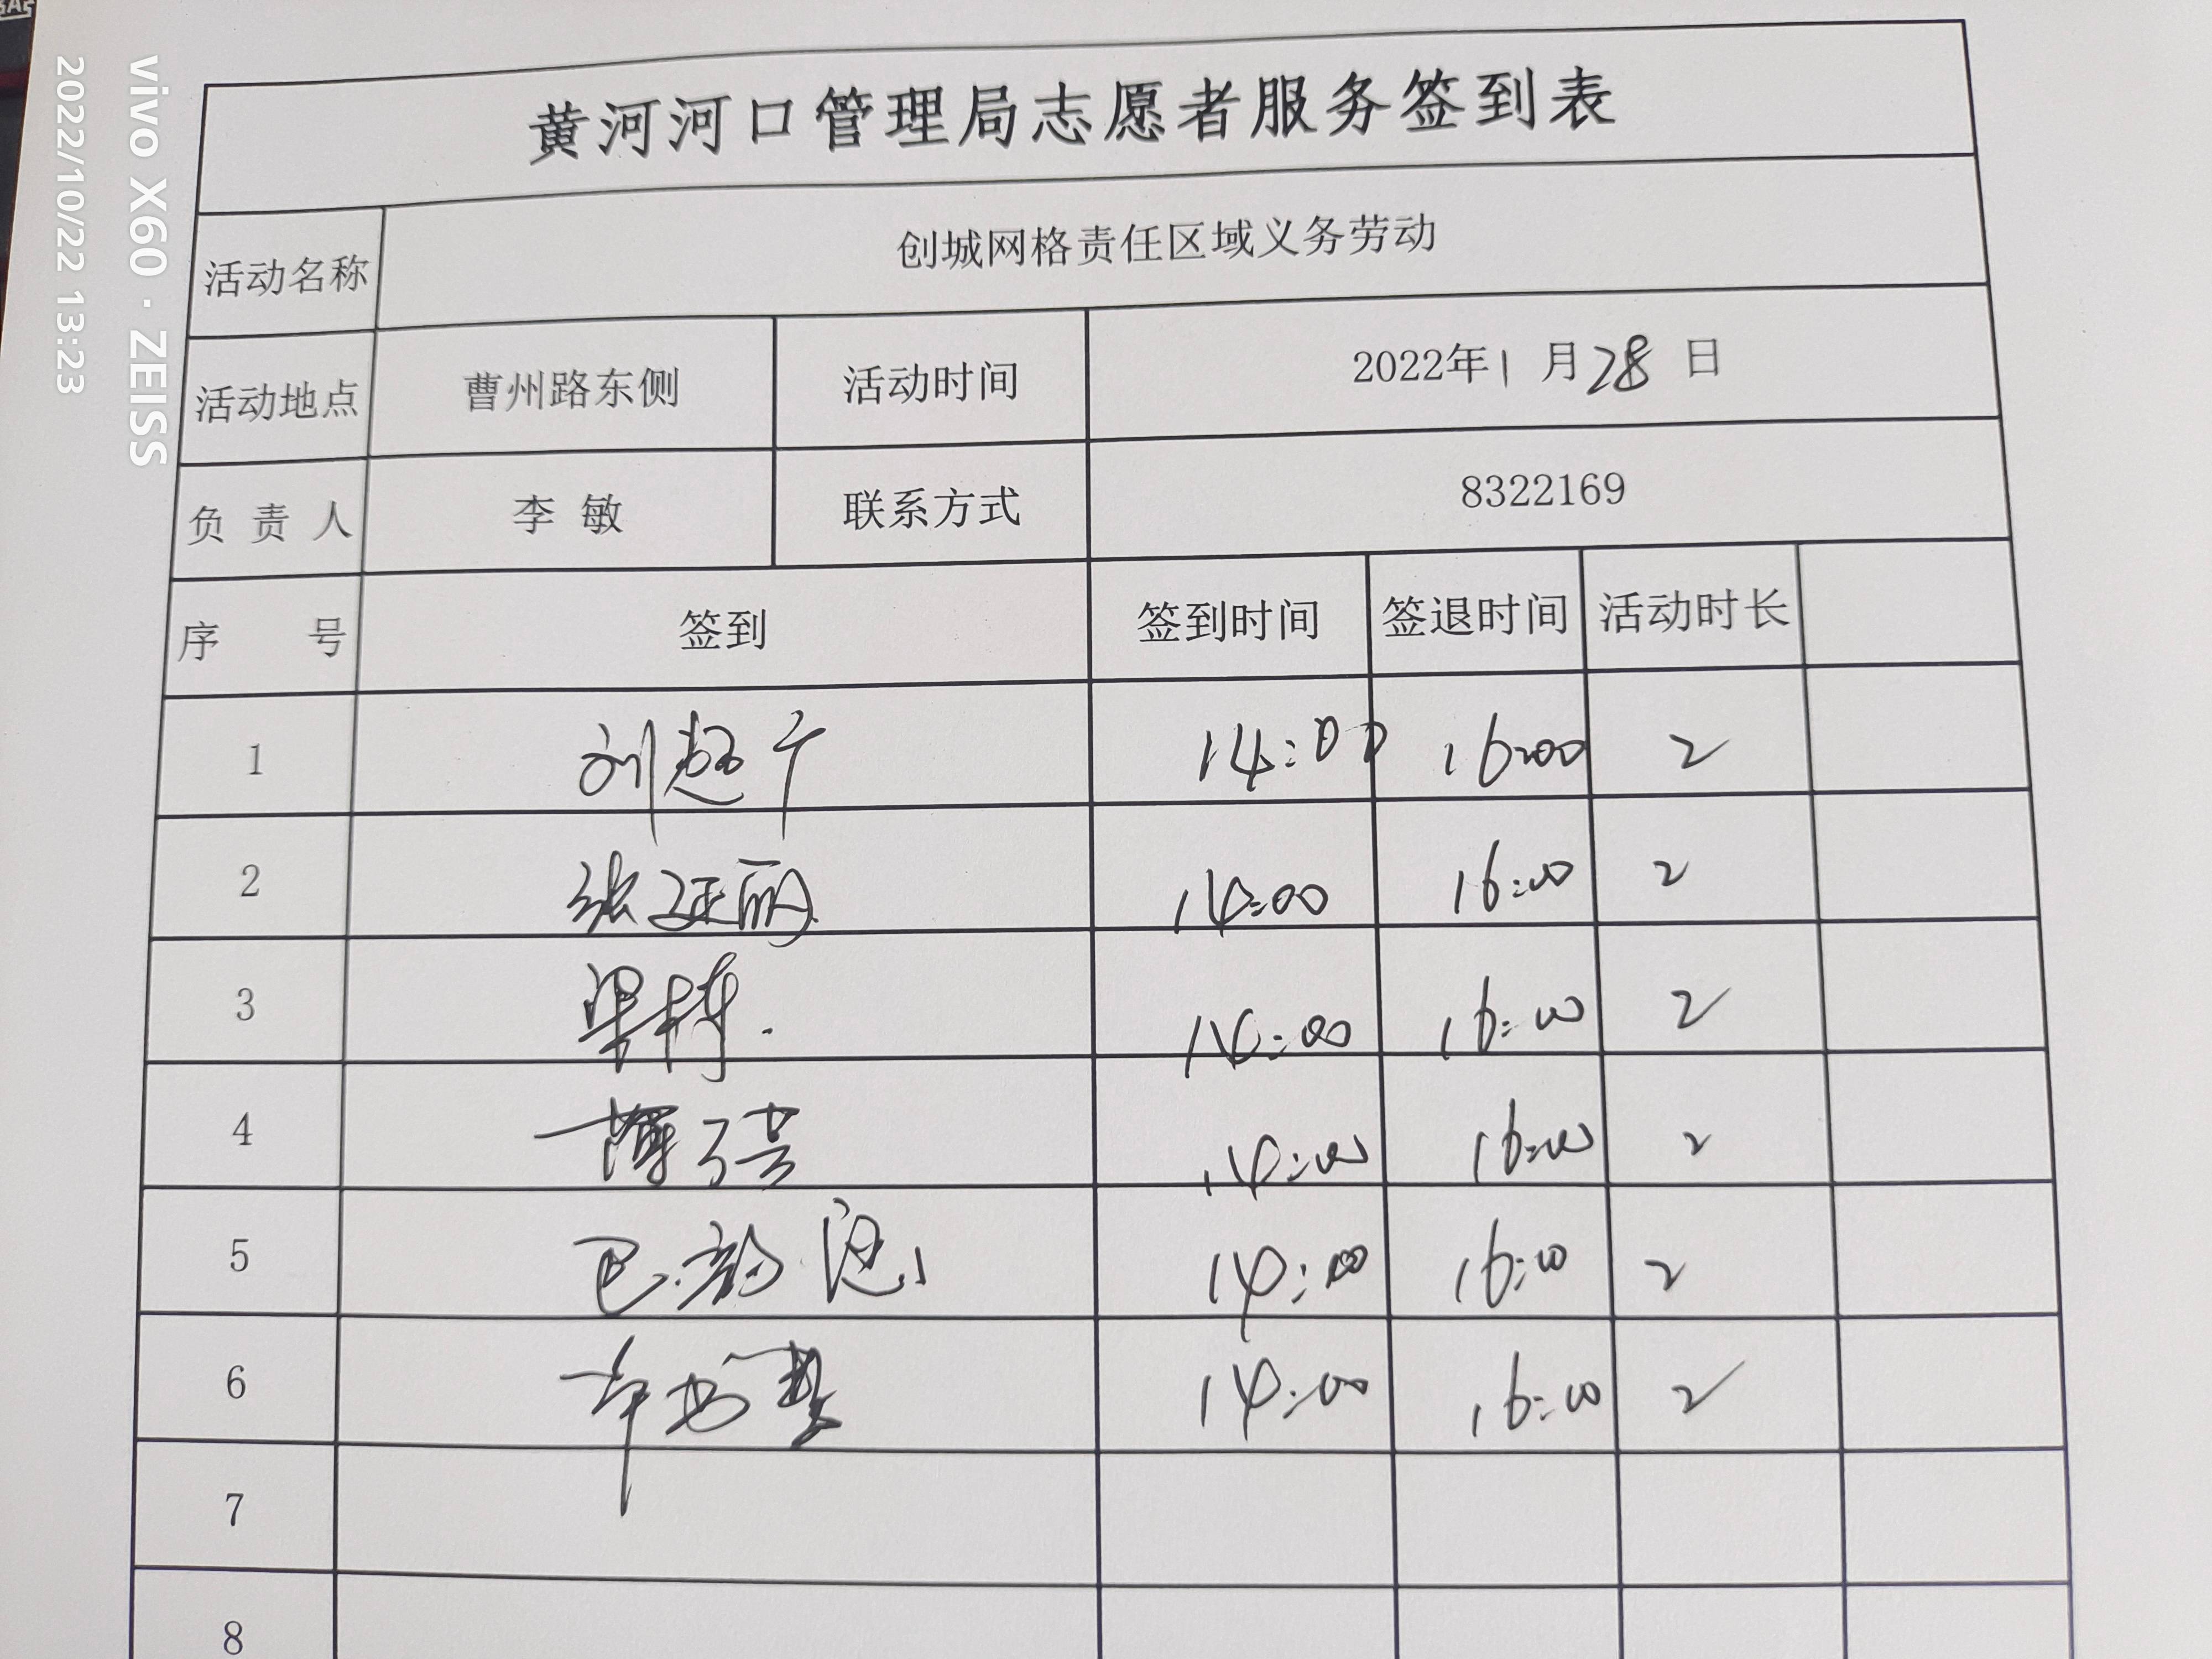 vivo X60 · ZEISS
2022/10/22 13:23
黄河河口管理局志愿者服务签到表
活动名称 创城网格责任区域义务劳动
活动地点 曹州路东侧 活动时间 2022年1月28日
负责人 李敏 联系方式 8322169
序号 签到 签到时间 签退时间 活动时长
1 刘 14:00 16:00 2
2 张 丽 14:00 16:00 2
3 梁栋. 14:00 16:00 2
4 薄 14:00 16:00 2
5 巴 14:00 16:00 2
6 14:00 16:00 2
7
8